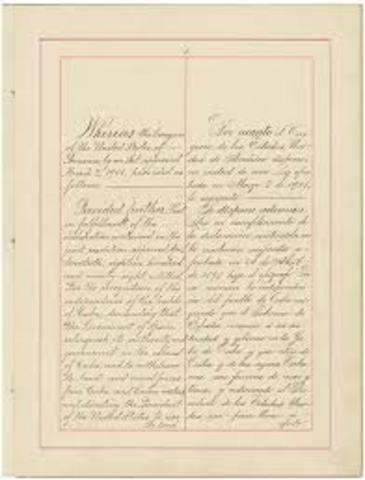 Whereas the Congress
of the United States of
America, by an Act approved
March 2, 1901, provided as
follows:
Provided further, That
in fulfillment of the
declaration contained in the
joint resolution approved April
twentieth, eighteen hundred
and ninety-eight, entitled
"For the recognition of the
independence of the people
of Cuba, demanding that
the Government of Spain
relinquish its authority and
government in the island
of Cuba, and to withdraw
its land and naval forces
from Cuba and Cuban waters,
and directing the President
of the United States to use
the land
Por cuanto el Con-
greso de los Estados Uni-
dos de América dispuso,
en virtud de una Ley apro-
bada en Marzo 2 de 1901,
lo siguiente:
Se dispone además,
Que en cumplimiento de
la declaración contenida en
la resolución conjunta a-
probada en 20 de Abril
de 1898
la independencia
del pueblo de Cuba
que el Gobierno de
España renuncie a su au-
toridad y gobierno en la Is-
la de Cuba y que retire de
Cuba y de las aguas Cuba-
nas sus fuerzas de mar y
tierra, y ordenando al Pre-
sidente de los Estados Uni-
dos que haga uso